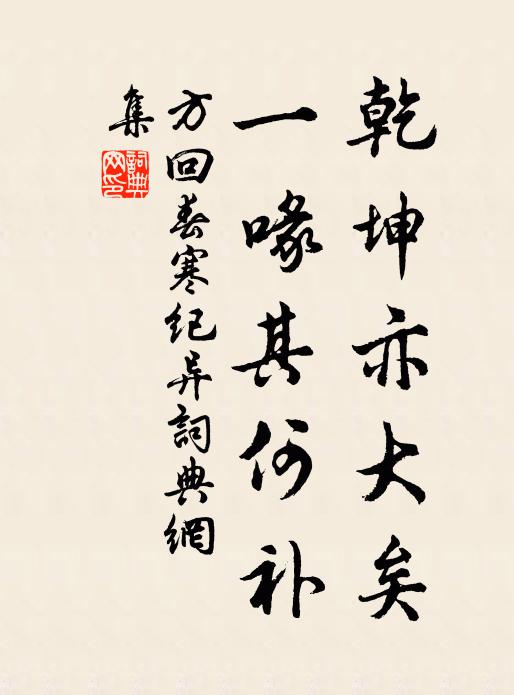 乾坤亦大矣
一喙其何补
方回春寒纪异詞典網
集
詞典
网印